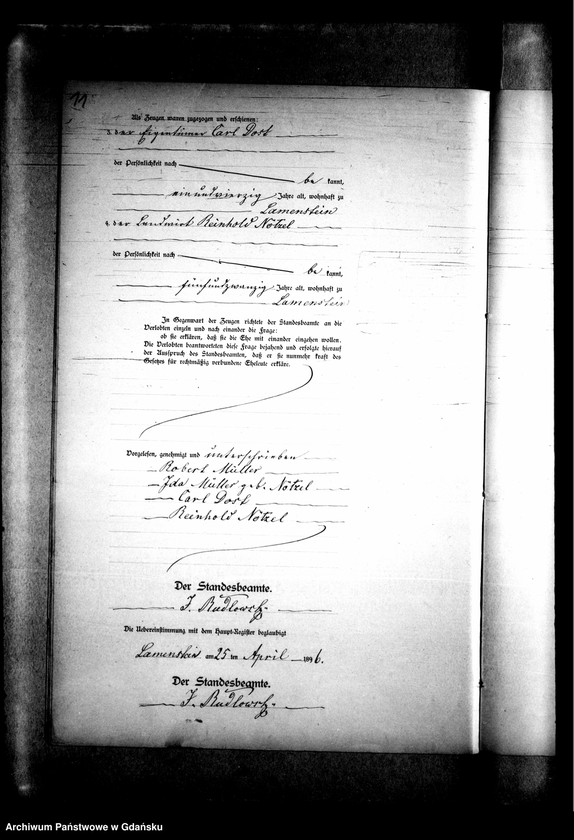 11
Als Zeugen waren zugezogen und erschienen:
3. der Eigentümer Carl Dost
der Persönlichkeit nach
be kannt,
einundvierzig Jahre alt, wohnhaft zu
Lamenstein
4. der Landwirt Reinhold Nötzel
der Persönlichkeit nach
be kannt,
fünfundzwanzig Jahre alt, wohnhaft zu
Lamenstein
In Gegenwart der Zeugen richtete der Standesbeamte an die
Verlobten einzeln und nach einander die Frage:
ob sie erklären, daß sie die Ehe mit einander eingehen wollen.
Die Verlobten beantworteten diese Frage bejahend und erfolgte hierauf
der Ausspruch des Standesbeamten, daß er sie nunmehr kraft des
Gesetzes für rechtmäßig verbundene Eheleute erkläre.
Vorgelesen, genehmigt und unterschrieben
Robert Müller
Ida Müller geb. Nötzel
Carl Dost
Reinhold Nötzel
Der Standesbeamte.
Die Uebereinstimmung mit dem Haupt-Register beglaubigt
Lamenstein am 25 ten April 1896.
Der Standesbeamte.
Archiwum Państwowe w Gdańsku